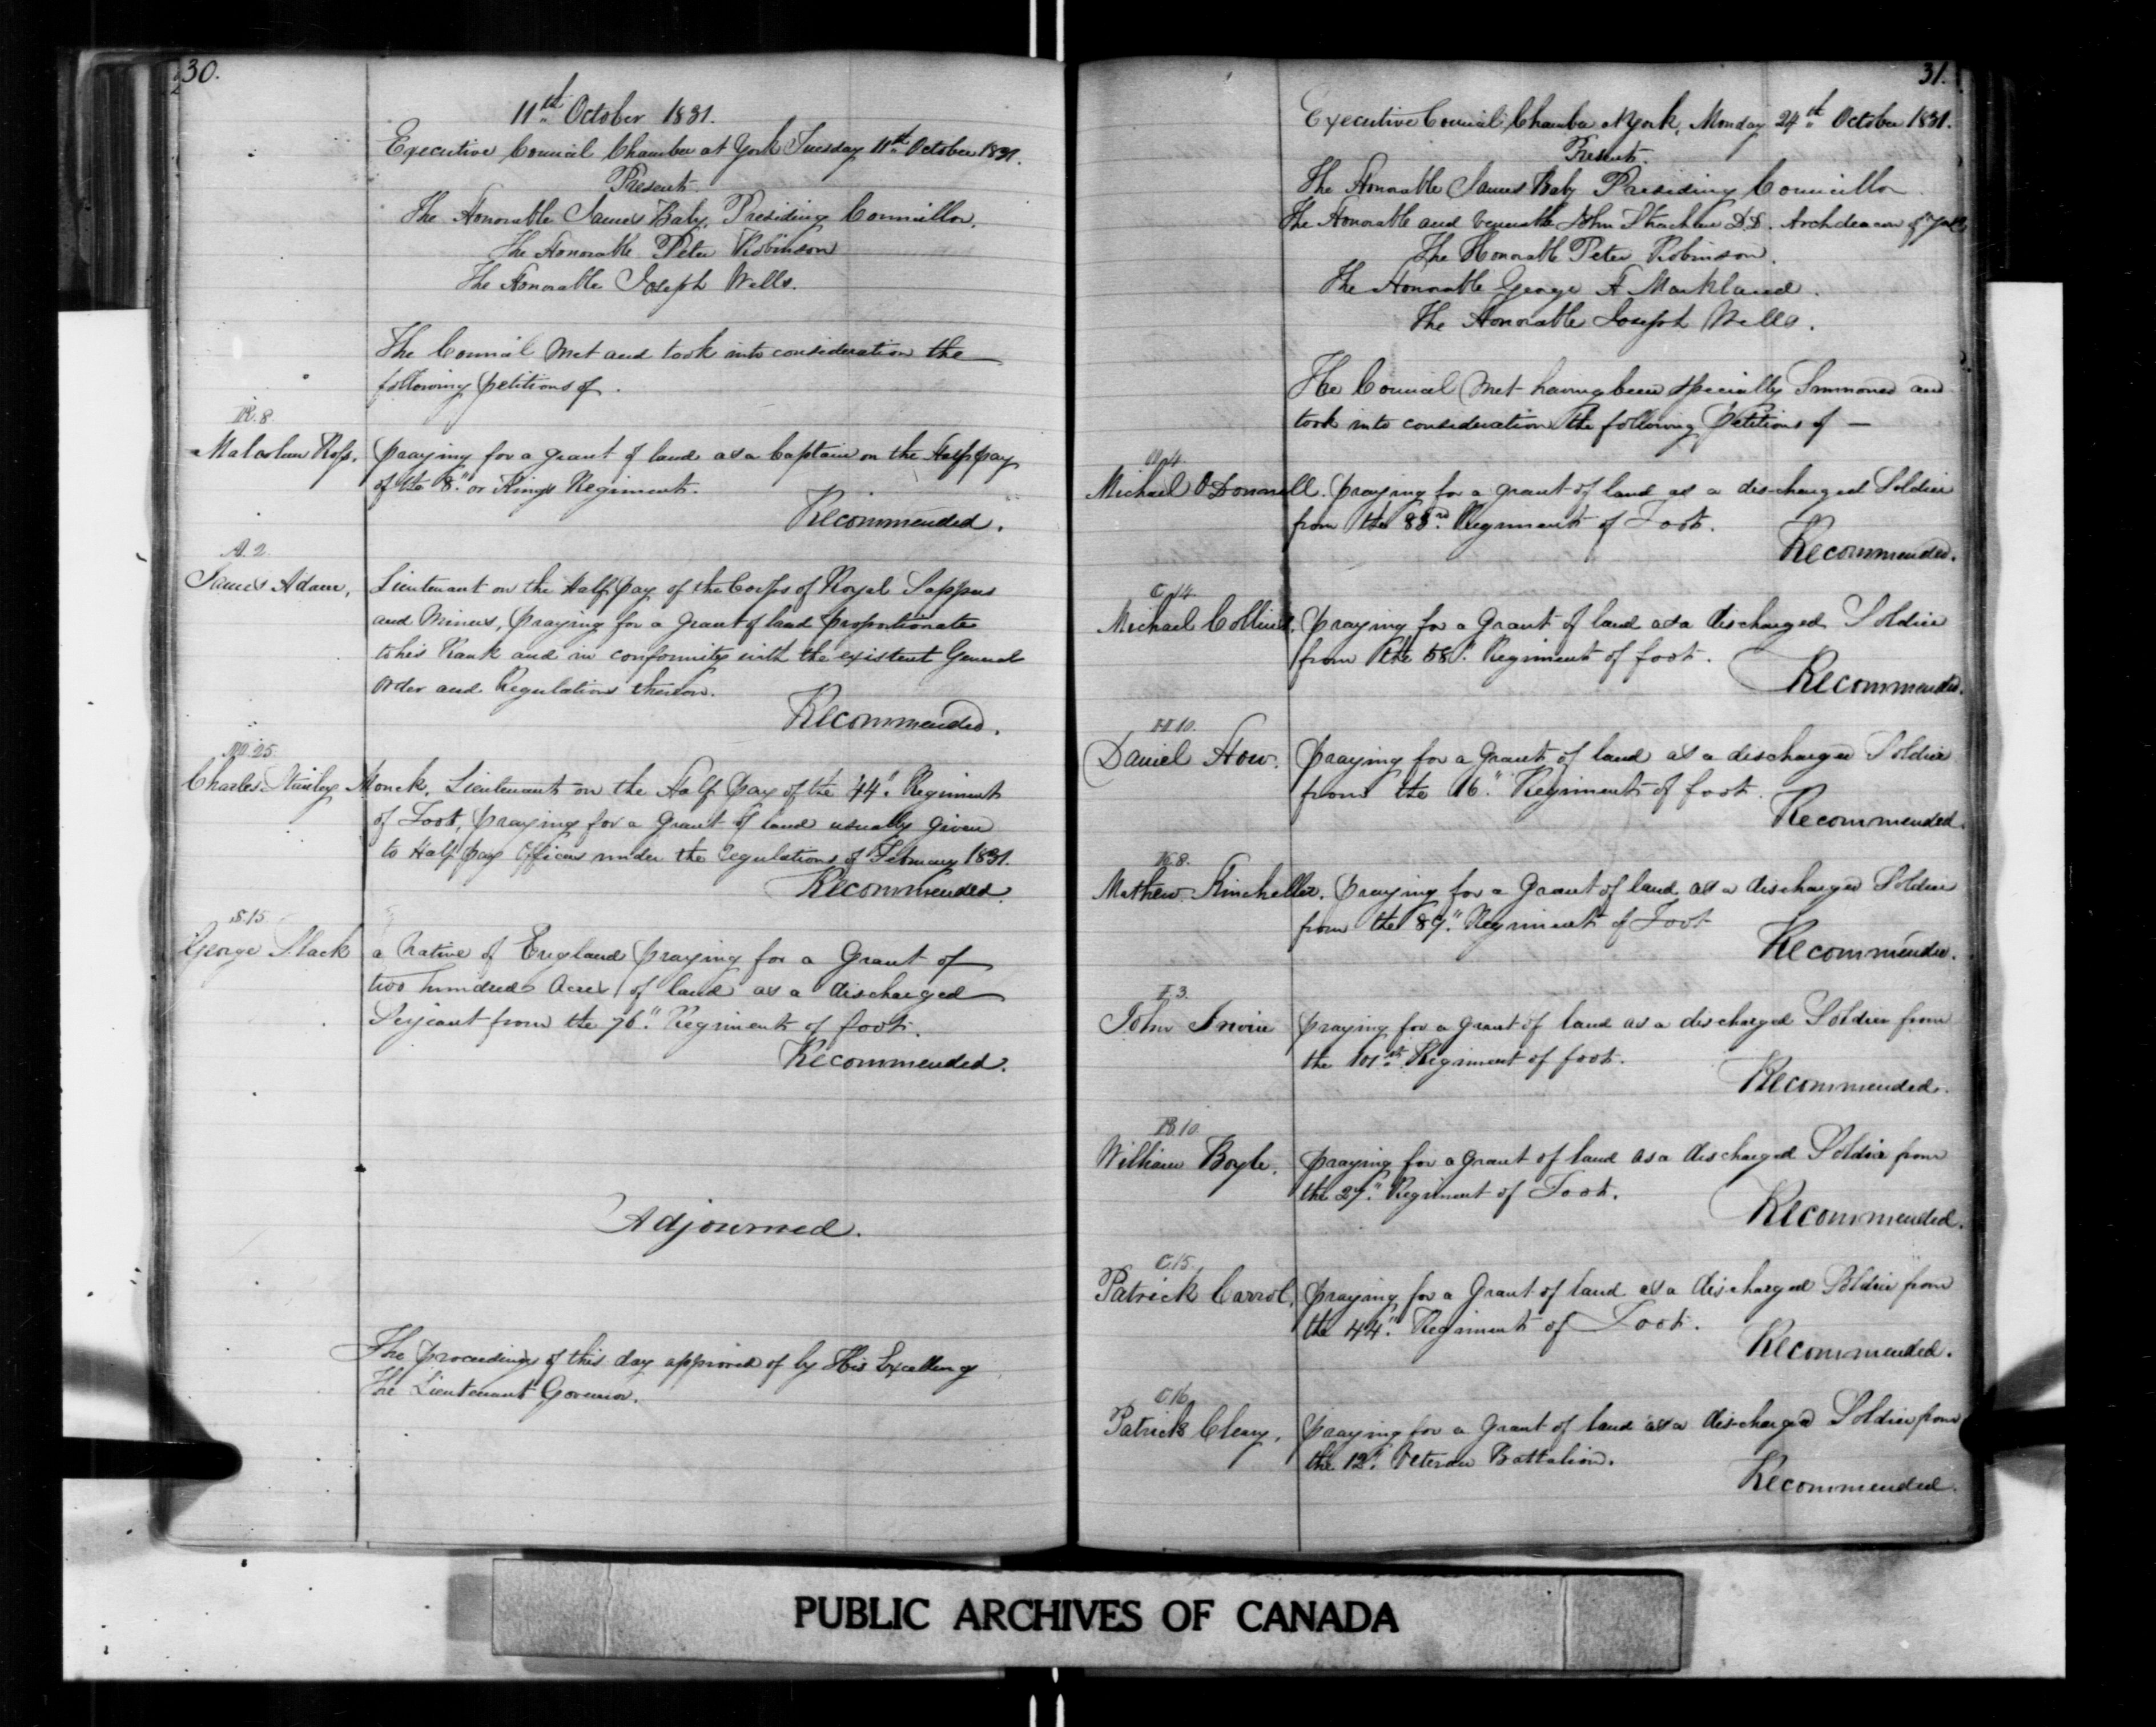 30.
11th October 1831.
Executive Council Chamber at York Tuesday 11th October 1831.
Present.
The Honorable James Baby, Presiding Councillor.
The Honorable Peter Robinson
The Honorable Joseph Wells.
The Council Met and took into consideration the
following petitions of.
R. 8.
Malcolm Ross, praying for a grant of land as a Captain on the Half pay
of the 8" or Kings Regiment.
Recommended.
A. 2.
James Adam, Lieutenant on the Half pay of the Corps of Royal Sappers
and Miners, praying for a grant of land proportionate
to his Rank and in conformity with the existent General
Order and Regulations thereon.
Recommended.
M. 25.
Charles Stanley Monck, Lieutenant on the Half pay of the 44" Regiment
of Foot, praying for a Grant of land usually given
to Half pay Officers under the regulations of February 1831.
Recommended.
S. 15
George Slack a Native of England praying for a Grant of
two hundred Acres of land as a discharged
Serjeant from the 76" Regiment of foot.
Recommended.
Adjourned.
The proceedings of this day approved of by His Excellency
The Lieutenant Governor.
31.
Executive Council Chamber at York, Monday 24th October 1831.
Present.
The Honorable James Baby Presiding Councillor
The Honorable and Venerable John Strachan D.D. Archdeacon of York
The Honorable Peter Robinson.
The Honorable George H Markland.
The Honorable Joseph Wells.
The Council Met having been specially Summoned and
took into consideration the following Petitions of —
O. 4.
Michael O'Donnell. praying for a grant of land as a discharged Soldier
from the Regiment of Foot.
Recommended.
C. 14.
Michael Collins. praying for a Grant of land as a discharged Soldier
from the 58" Regiment of foot.
Recommended.
H. 10.
Daniel How. praying for a Grant of land as a discharged Soldier
from the 16" Regiment of foot.
Recommended.
K. 8.
Mathew Kincheller. praying for a Grant of land as a discharged Soldier
from the 89" Regiment of Foot
Recommended.
I. 3.
John Irvine praying for a grant of land as a discharged Soldier from
the 101st Regiment of foot.
Recommended.
B. 10.
William Boyle. praying for a grant of land as a discharged Soldier from
the 27" Regiment of Foot.
Recommended.
C. 15.
Patrick Carrol, praying for a Grant of land as a discharged Soldier from
the 44" Regiment of Foot.
Recommended.
C. 16.
Patrick Cleary, praying for a Grant of land as a discharged Soldier from
the Veteran Battalion.
Recommended.
PUBLIC ARCHIVES OF CANADA